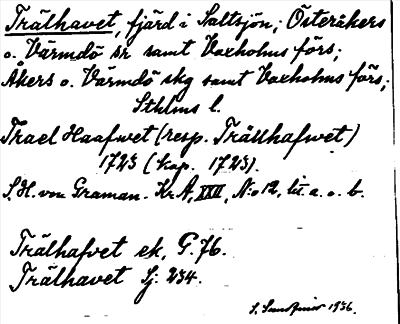 Trälhavet, fjärd i Saltsjön; Österåkers
o. Värmdö sn samt Vaxholms förs;
Åkers o. Värmdö skg samt Vaxholms förs;
Sthlms l.
Trael Haafwet (resp. Trällhafwet)
1723 (kop. 1723).
S.H. von Graman. Kr. A, XXII, N:o 12, lit. a. o. b.
Trälhafvet ek, G. 76.
Trälhavet Sj. 234.
1936.